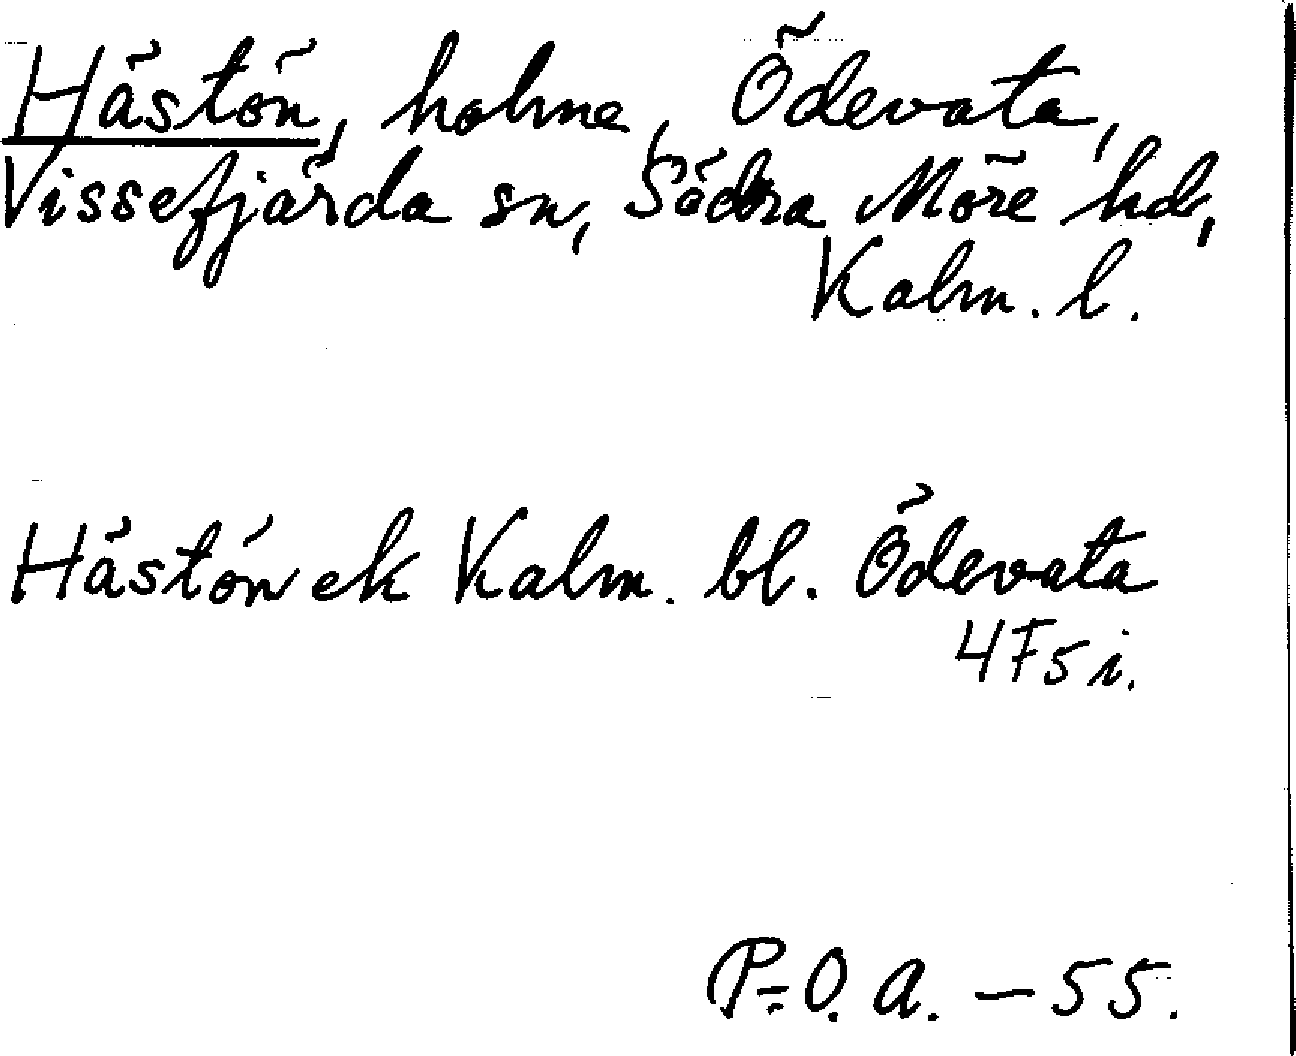 Hästön, holme, Ödevata,
Vissefjärda sn, Södra Möre hd,
Kalm. l.
Hästön ek Kalm. bl. Ödevata
4F5i.
P-O. A. – 55.